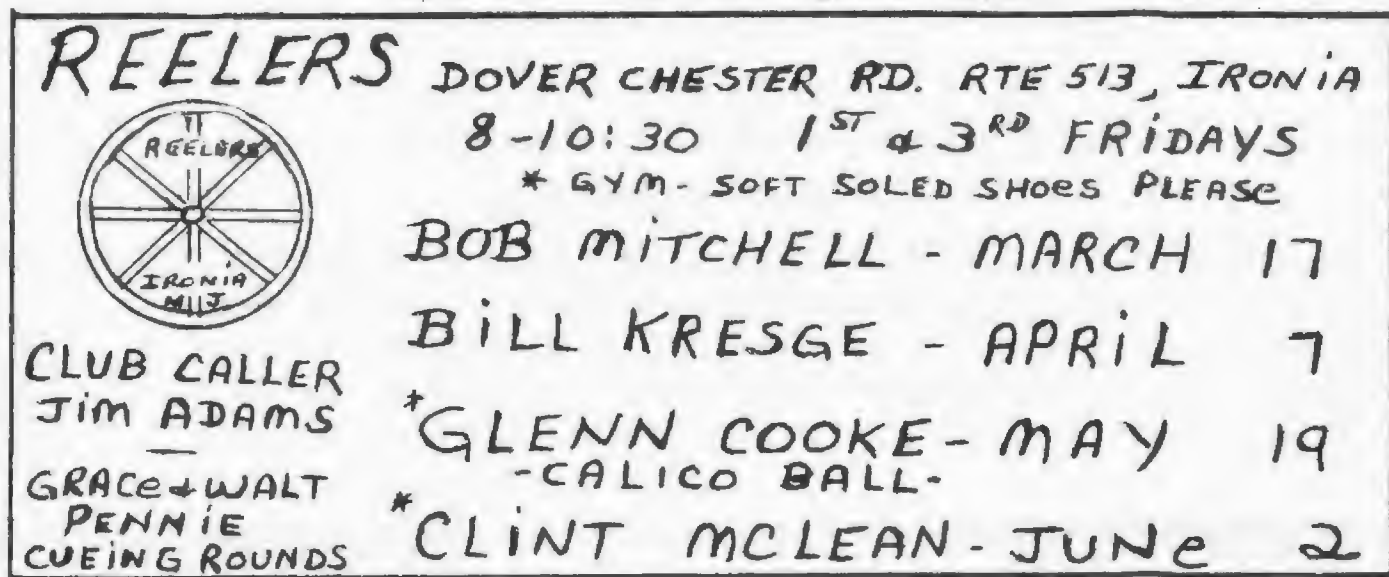 REELERS
REELERS
IRONiA
N.J.
CLUB CALLER
JiM ADAMS
GRACe & WALT
PENNiE
CUEiNG ROUNDS
DOVER CHESTER RD. RTE 513, IRONiA
8-10:30 1ST & 3RD FRiDAYS
* GYM - SOFT SOLED SHOeS PLEASe
BOB MiTCHELL - MARCH 17
BiLL KRESGE - APRiL 7
*GLENN COOKE - MAY 19
-CALICO BALL-
*CLiNT MCLEAN - JUNe 2